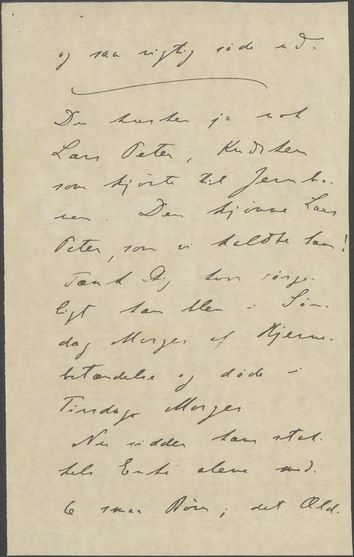 og saa rigtig søde ud.
Du husker jo nok
Lars Peter, Kudsken
som kjørte til Jernba-
nen. Den kjønne Lars
Peter, som vi kaldte ham!
Tænk Dig hvor sørge-
ligt han blev i Søn-
dag Morges af Hjerne-
betændelse og døde i
Tirsdags Morges
Nu sidder hans stak-
kels Enke alene med
6 smaa Børn; det Æld-